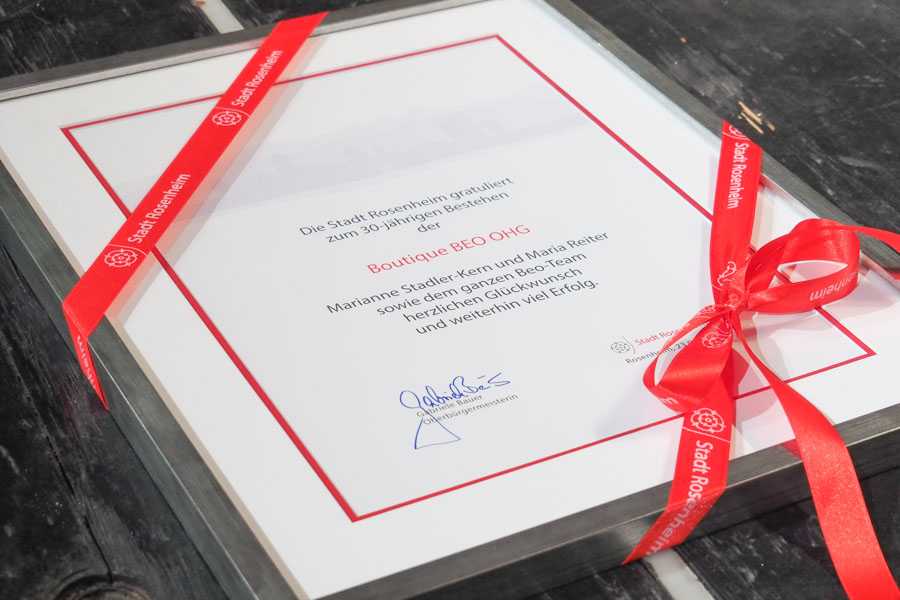 Stadt Rosenheim
Stadt Rosenheim
Die Stadt Rosenheim gratuliert
zum 30-jährigen Bestehen
der
Boutique BEO OHG
Marianne Stadler-Kern und Maria Reiter
sowie dem ganzen Beo-Team
herzlichen Glückwunsch
und weiterhin viel Erfolg.
Stadt
Rosenheim, 23
Gabriele Bauer
Oberbürgermeisterin
Stadt Rosenheim
Stadt Rosenheim